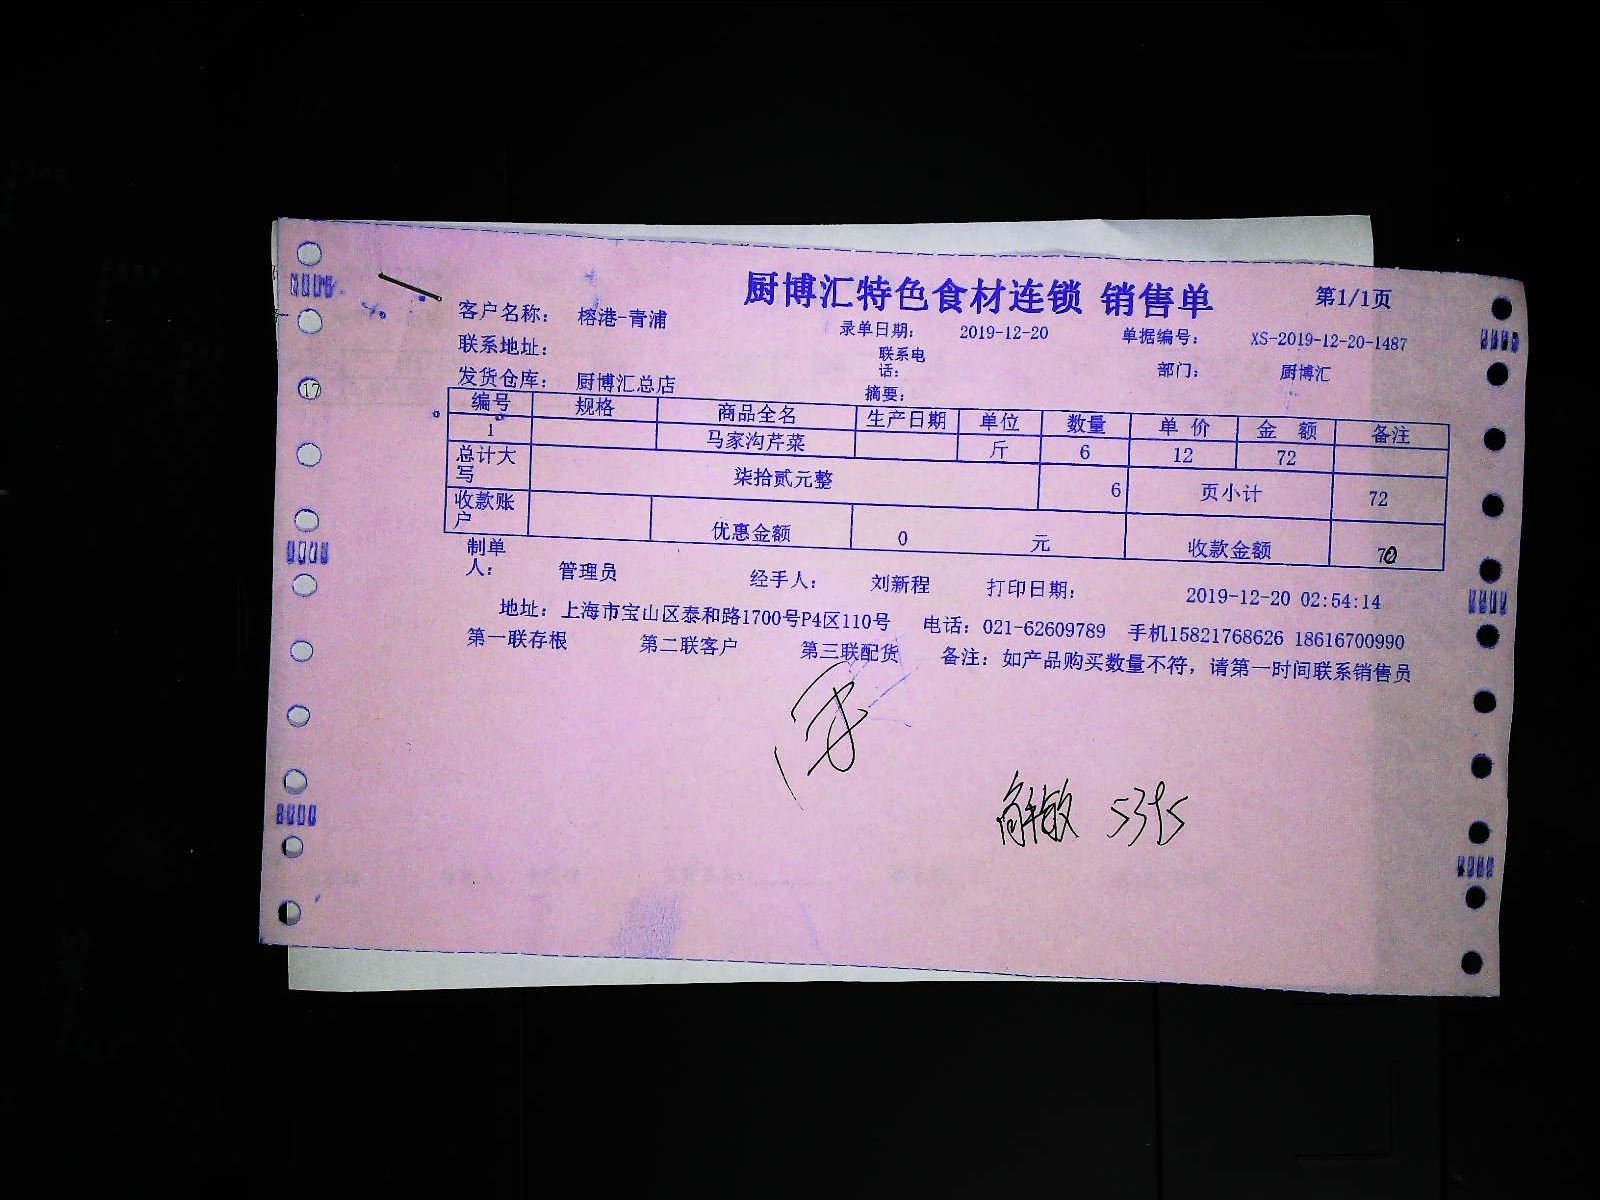 厨博汇特色食材连锁 销售单 第1/1页
客户名称： 榕港-青浦 录单日期： 2019-12-20 单据编号： XS-2019-12-20-1487
联系地址： 联系电话： 部门： 厨博汇
发货仓库： 厨博汇总店 摘要：
编号 规格 商品全名 生产日期 单位 数量 单 价 金 额 备注
1 马家沟芹菜 斤 6 12 72
总计大写 柒拾贰元整 6 页小计 72
收款账户 优惠金额 0 元 收款金额
制单人： 管理员 经手人： 刘新程 打印日期： 2019-12-20 02:54:14
地址：上海市宝山区泰和路1700号P4区110号 电话：021-62609789 手机15821768626 18616700990
第一联存根 第二联客户 第三联配货 备注：如产品购买数量不符，请第一时间联系销售员
17
5395